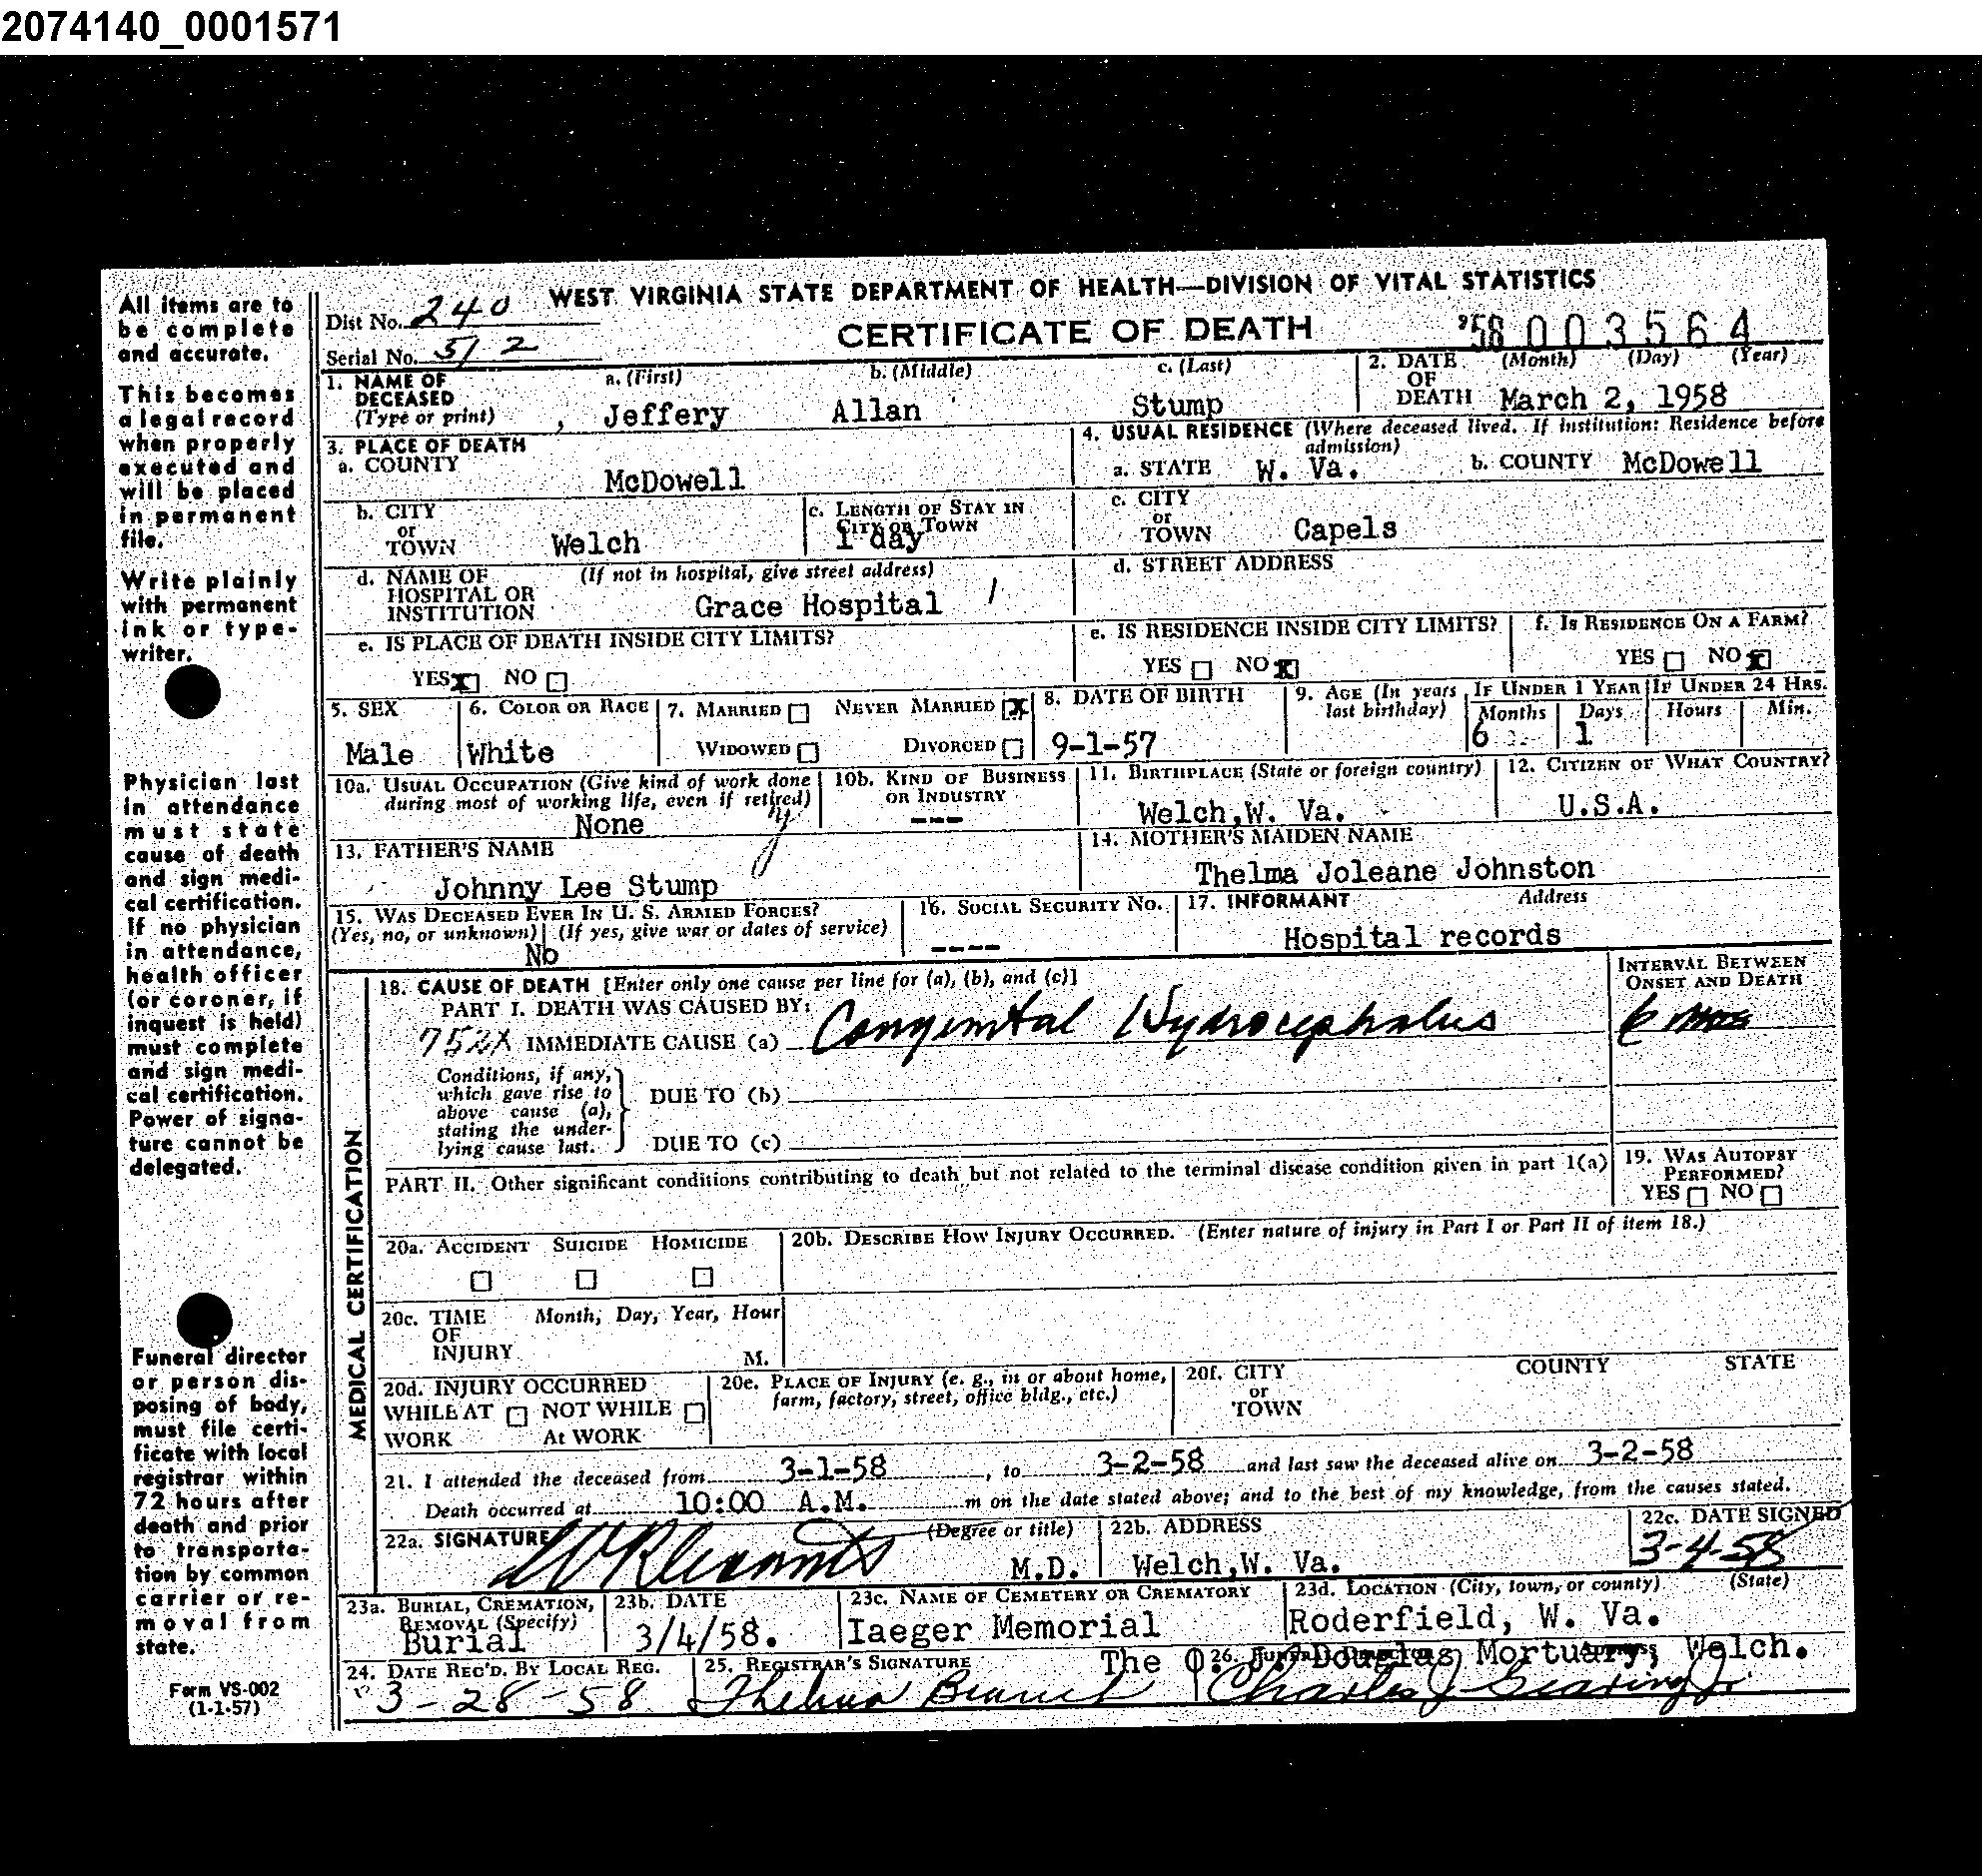 2074140_0001571
All items are to be complete and accurate.
This becomes a legal record when properly executed and will be placed in permanent file.
Write plainly with permanent ink or typewriter.
Physician last in attendance must state cause of death and sign medical certification. If no physician in attendance, health officer (or coroner, if inquest is held) must complete and sign medical certification. Power of signature cannot be delegated.
Funeral director or person disposing of body, must file certificate with local registrar within 72 hours after death and prior to transportation by common carrier or removal from state.
Form VS-002
(1-1-57)
WEST VIRGINIA STATE DEPARTMENT OF HEALTH—DIVISION OF VITAL STATISTICS
Dist No. 240
CERTIFICATE OF DEATH
'58 003564
Serial No. 512
1. NAME OF DECEASED (Type or print) a. (First) b. (Middle) c. (Last)
, Jeffery Allan Stump
2. DATE OF DEATH (Month) (Day) (Year)
March 2, 1958
3. PLACE OF DEATH
a. COUNTY McDowell
4. USUAL RESIDENCE (Where deceased lived. If institution: Residence before admission)
a. STATE W. Va. b. COUNTY McDowell
b. CITY or TOWN Welch
c. LENGTH OF STAY IN CITY OR TOWN 1 day
c. CITY or TOWN Capels
d. NAME OF HOSPITAL OR INSTITUTION (If not in hospital, give street address)
Grace Hospital
d. STREET ADDRESS
e. IS PLACE OF DEATH INSIDE CITY LIMITS?
YES X NO
e. IS RESIDENCE INSIDE CITY LIMITS?
YES NO X
f. IS RESIDENCE ON A FARM?
YES NO X
5. SEX Male
6. COLOR OR RACE White
7. MARRIED NEVER MARRIED X
WIDOWED DIVORCED
8. DATE OF BIRTH 9-1-57
9. AGE (In years last birthday)
IF UNDER 1 YEAR Months 6 Days 1
IF UNDER 24 HRS. Hours Min.
10a. USUAL OCCUPATION (Give kind of work done during most of working life, even if retired)
None
10b. KIND OF BUSINESS OR INDUSTRY
---
11. BIRTHPLACE (State or foreign country)
Welch, W. Va.
12. CITIZEN OF WHAT COUNTRY?
U.S.A.
13. FATHER'S NAME
Johnny Lee Stump
14. MOTHER'S MAIDEN NAME
Thelma Joleane Johnston
15. WAS DECEASED EVER IN U. S. ARMED FORCES?
(Yes, no, or unknown) (If yes, give war or dates of service)
No
16. SOCIAL SECURITY NO.
----
17. INFORMANT Address
Hospital records
MEDICAL CERTIFICATION
18. CAUSE OF DEATH [Enter only one cause per line for (a), (b), and (c)]
INTERVAL BETWEEN ONSET AND DEATH
PART I. DEATH WAS CAUSED BY:
752X IMMEDIATE CAUSE (a) Congenital Hydrocephalus 6 mos
Conditions, if any, which gave rise to above cause (a), stating the underlying cause last.
DUE TO (b)
DUE TO (c)
PART II. Other significant conditions contributing to death but not related to the terminal disease condition given in part 1(a)
19. WAS AUTOPSY PERFORMED?
YES NO
20a. ACCIDENT SUICIDE HOMICIDE
20b. DESCRIBE HOW INJURY OCCURRED. (Enter nature of injury in Part I or Part II of item 18.)
20c. TIME OF INJURY Month, Day, Year, Hour M.
20d. INJURY OCCURRED
WHILE AT WORK NOT WHILE At WORK
20e. PLACE OF INJURY (e. g., in or about home, farm, factory, street, office bldg., etc.)
20f. CITY or TOWN COUNTY STATE
21. I attended the deceased from 3-1-58, to 3-2-58 and last saw the deceased alive on 3-2-58
Death occurred at 10:00 A.M. m on the date stated above; and to the best of my knowledge, from the causes stated.
22a. SIGNATURE (Degree or title) M.D.
22b. ADDRESS Welch, W. Va.
22c. DATE SIGNED 3-4-58
23a. BURIAL, CREMATION, REMOVAL (Specify) Burial
23b. DATE 3/4/58.
23c. NAME OF CEMETERY OR CREMATORY Iaeger Memorial
23d. LOCATION (City, town, or county) (State)
Roderfield, W. Va.
24. DATE REC'D. BY LOCAL REG. 3-28-58
25. REGISTRAR'S SIGNATURE Thelma
26. The Douglas Mortuary, Welch.
Charles J. Gearing Jr.